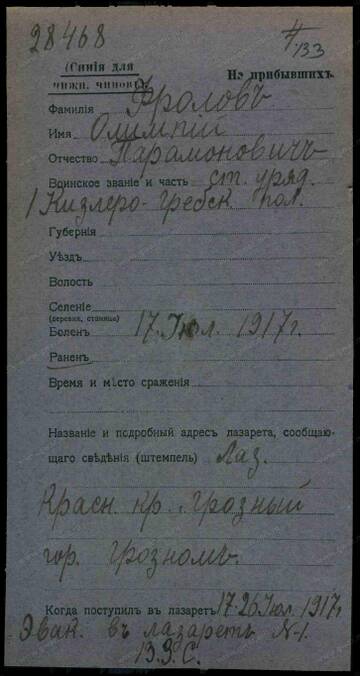 28468
4/133
(Синія для
нижн. чиновъ).
Не прибывшихъ
Фамилія Фроловъ
Имя Олимпій
Отчество Парамоновичъ
Воинское званіе и часть ст. уряд.
1 Кизляро-Гребск. пол.
Губернія
Уѣздъ
Волость
Селеніе
(деревня, станица)
Боленъ 17. Іюл. 1917 г.
Раненъ
Время и мѣсто сраженія
Названіе и подробный адресъ лазарета, сообщаю-
щаго свѣдѣнія (штемпель) Лаз.
Красн. кр. Грозный
гор. Грозномъ.
Когда поступилъ въ лазаретъ 17-26 Іюл. 1917 г.
Эвак. въ лазаретъ N-1.
В.З.С.